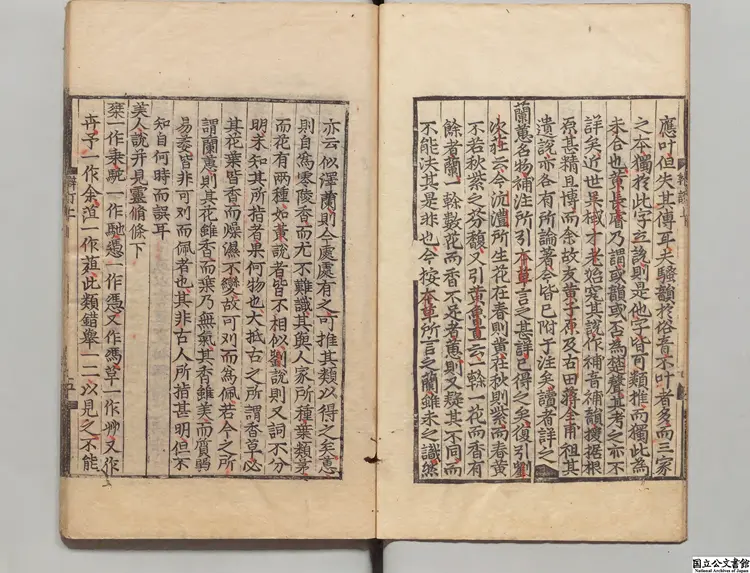 應叶但失其傳耳夫騷韻於俗音不叶者多而三家
之本獨於此字立說則是他字皆可類推而獨此為
未合也黃長睿乃謂或韻或否為楚聲其考之亦不
詳矣近世吳棫才老始究其說作補音補韻援據根
原甚精且博而余故友黃子厚及古田蔣全甫祖其
遺說亦各有所論著今皆已附于注矣讀者詳之
蘭蕙名物補注所引本草言之甚詳已得之矣復引劉
次莊云今沅澧所生花在春則黃在秋則紫而春黃
不若秋紫之芬馥又引黃魯直云一榦一花而香有
餘者蘭一榦數花而香不足者蕙則又疑其不同而
不能決其是非也今按本草所言之蘭雖未之識然
亦云似澤蘭則今處處有之可推其類以得之矣蕙
則自為零陵香而尤不難識其與人家所種葉類茅
而花有兩種如黃說者皆不相似劉說則又詞不分
明未知其所指者果何物也大抵古之所謂香草必
其花葉皆香而燥濕不變故可刈而為佩若今之所
謂蘭蕙則其花雖香而葉乃無氣其香雖美而質弱
易萎皆非可刈而佩者也其非古人所指甚明但不
知自何時而誤耳
美人說并見靈脩條下
椉一作乘駝一作馳憑一作憑又作馮草一作艸又作
卉予一作余菹一作葅此類錯舉一二以見之不能
国立公文書館
National Archives of Japan